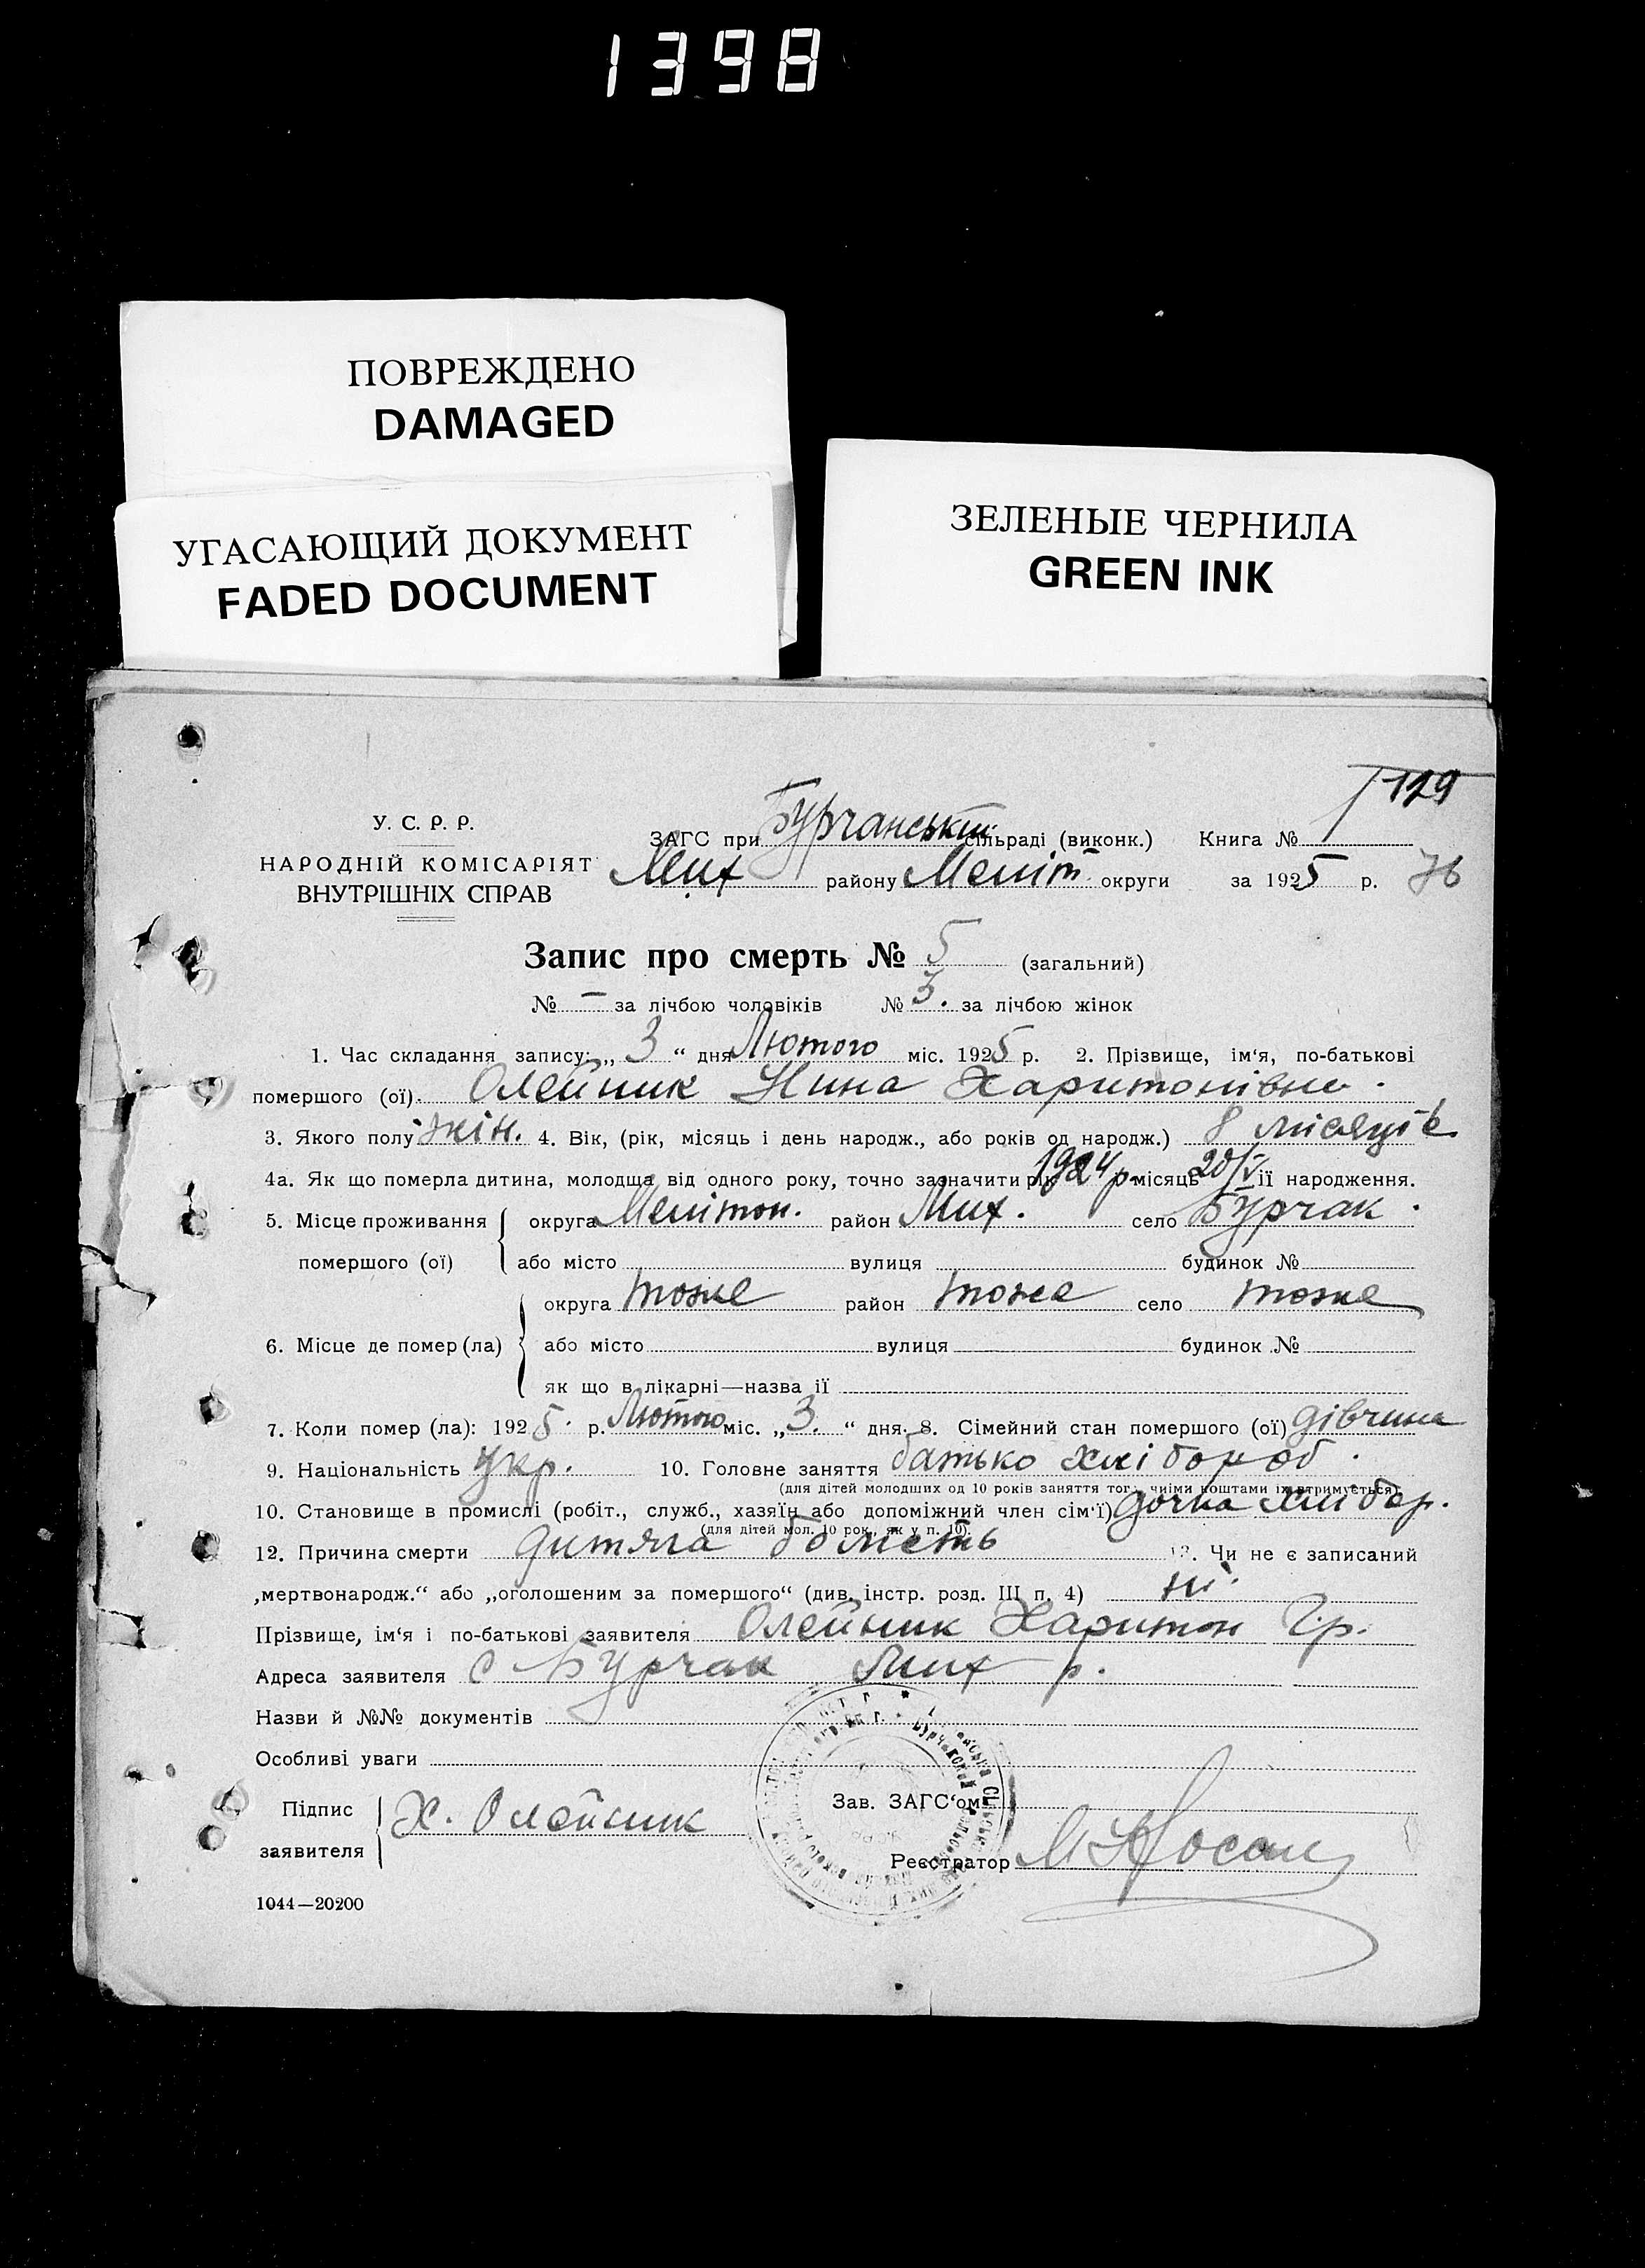 1398
ПОВРЕЖДЕНО
DAMAGED
УГАСАЮЩИЙ ДОКУМЕНТ
FADED DOCUMENT
ЗЕЛЕНЫЕ ЧЕРНИЛА
GREEN INK
129
У. С. Р. Р.
НАРОДНІЙ КОМІСАРІЯТ
ВНУТРІШНІХ СПРАВ
ЗАГС при Бурчанській сільраді (виконк.) Книга №
Мих району Меліт. округи за 1925 р. 76
Запис про смерть № 5 (загальний)
№ — за лічбою чоловіків № 3. за лічбою жінок
1. Час складання запису: „ 3 “ дня Лютого міс. 1925 р. 2. Прізвище, ім‘я, по-батькові
помершого (ої). Олейник Нина Харитонівна.
3. Якого полу жін. 4. Вік, (рік, місяць і день народж., або років од народж.) 8 місяців
4а. Як що померла дитина, молодща від одного року, точно зазначити рік 1924 р. місяць 20/V її народження.
5. Місце проживання округа Мелітоп. район Мих. село Бурчак.
помершого (ої) або місто вулиця будинок №
округа тоже район тоже село тоже
6. Місце де помер (ла) або місто вулиця будинок №
як що в лікарні—назва її
7. Коли помер (ла): 1925. р. Лютого міс. „ 3. “ дня. 8. Сімейний стан помершого (ої) дівчина
9. Національність Укр. 10. Головне заняття батько хлібороб.
(для дітей молодших од 10 років заняття того, чиїми коштами їх втримується)
10. Становище в промислі (робіт., служб., хазяїн або допоміжний член сім‘ї) дочка хлібор.
(для дітей мол. 10 рок., як у п. 10).
12. Причина смерти дитяча болість 13. Чи не є записаний
„мертвонародж.“ або „оголошеним за помершого“ (див. інстр. розд. III п. 4) ні.
Прізвище, ім‘я і по-батькові заявителя Олейник Харитон Гр.
Адреса заявителя с Бурчак Мих р.
Назви й №№ документів
Особливі уваги
Підпис
заявителя Х. Олейник
Зав. ЗАГС‘ом
Реєстратор
1044—20200